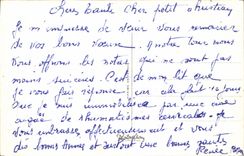 Chère tante Cher petit christian
Je m'empresse de venir vous remercier
de vos bons vœux. A notre tour nous
vous offrons les notres qui ne sont pas
moins sincères. C'est de mon lit que
je vous fais réponse car elle fait
que je suis immobilisée par une crise
de rhumatismes cervicales. Je
vous embrasse affectueusement et vous
dis bonne année et surtout une bonne santé
Renée